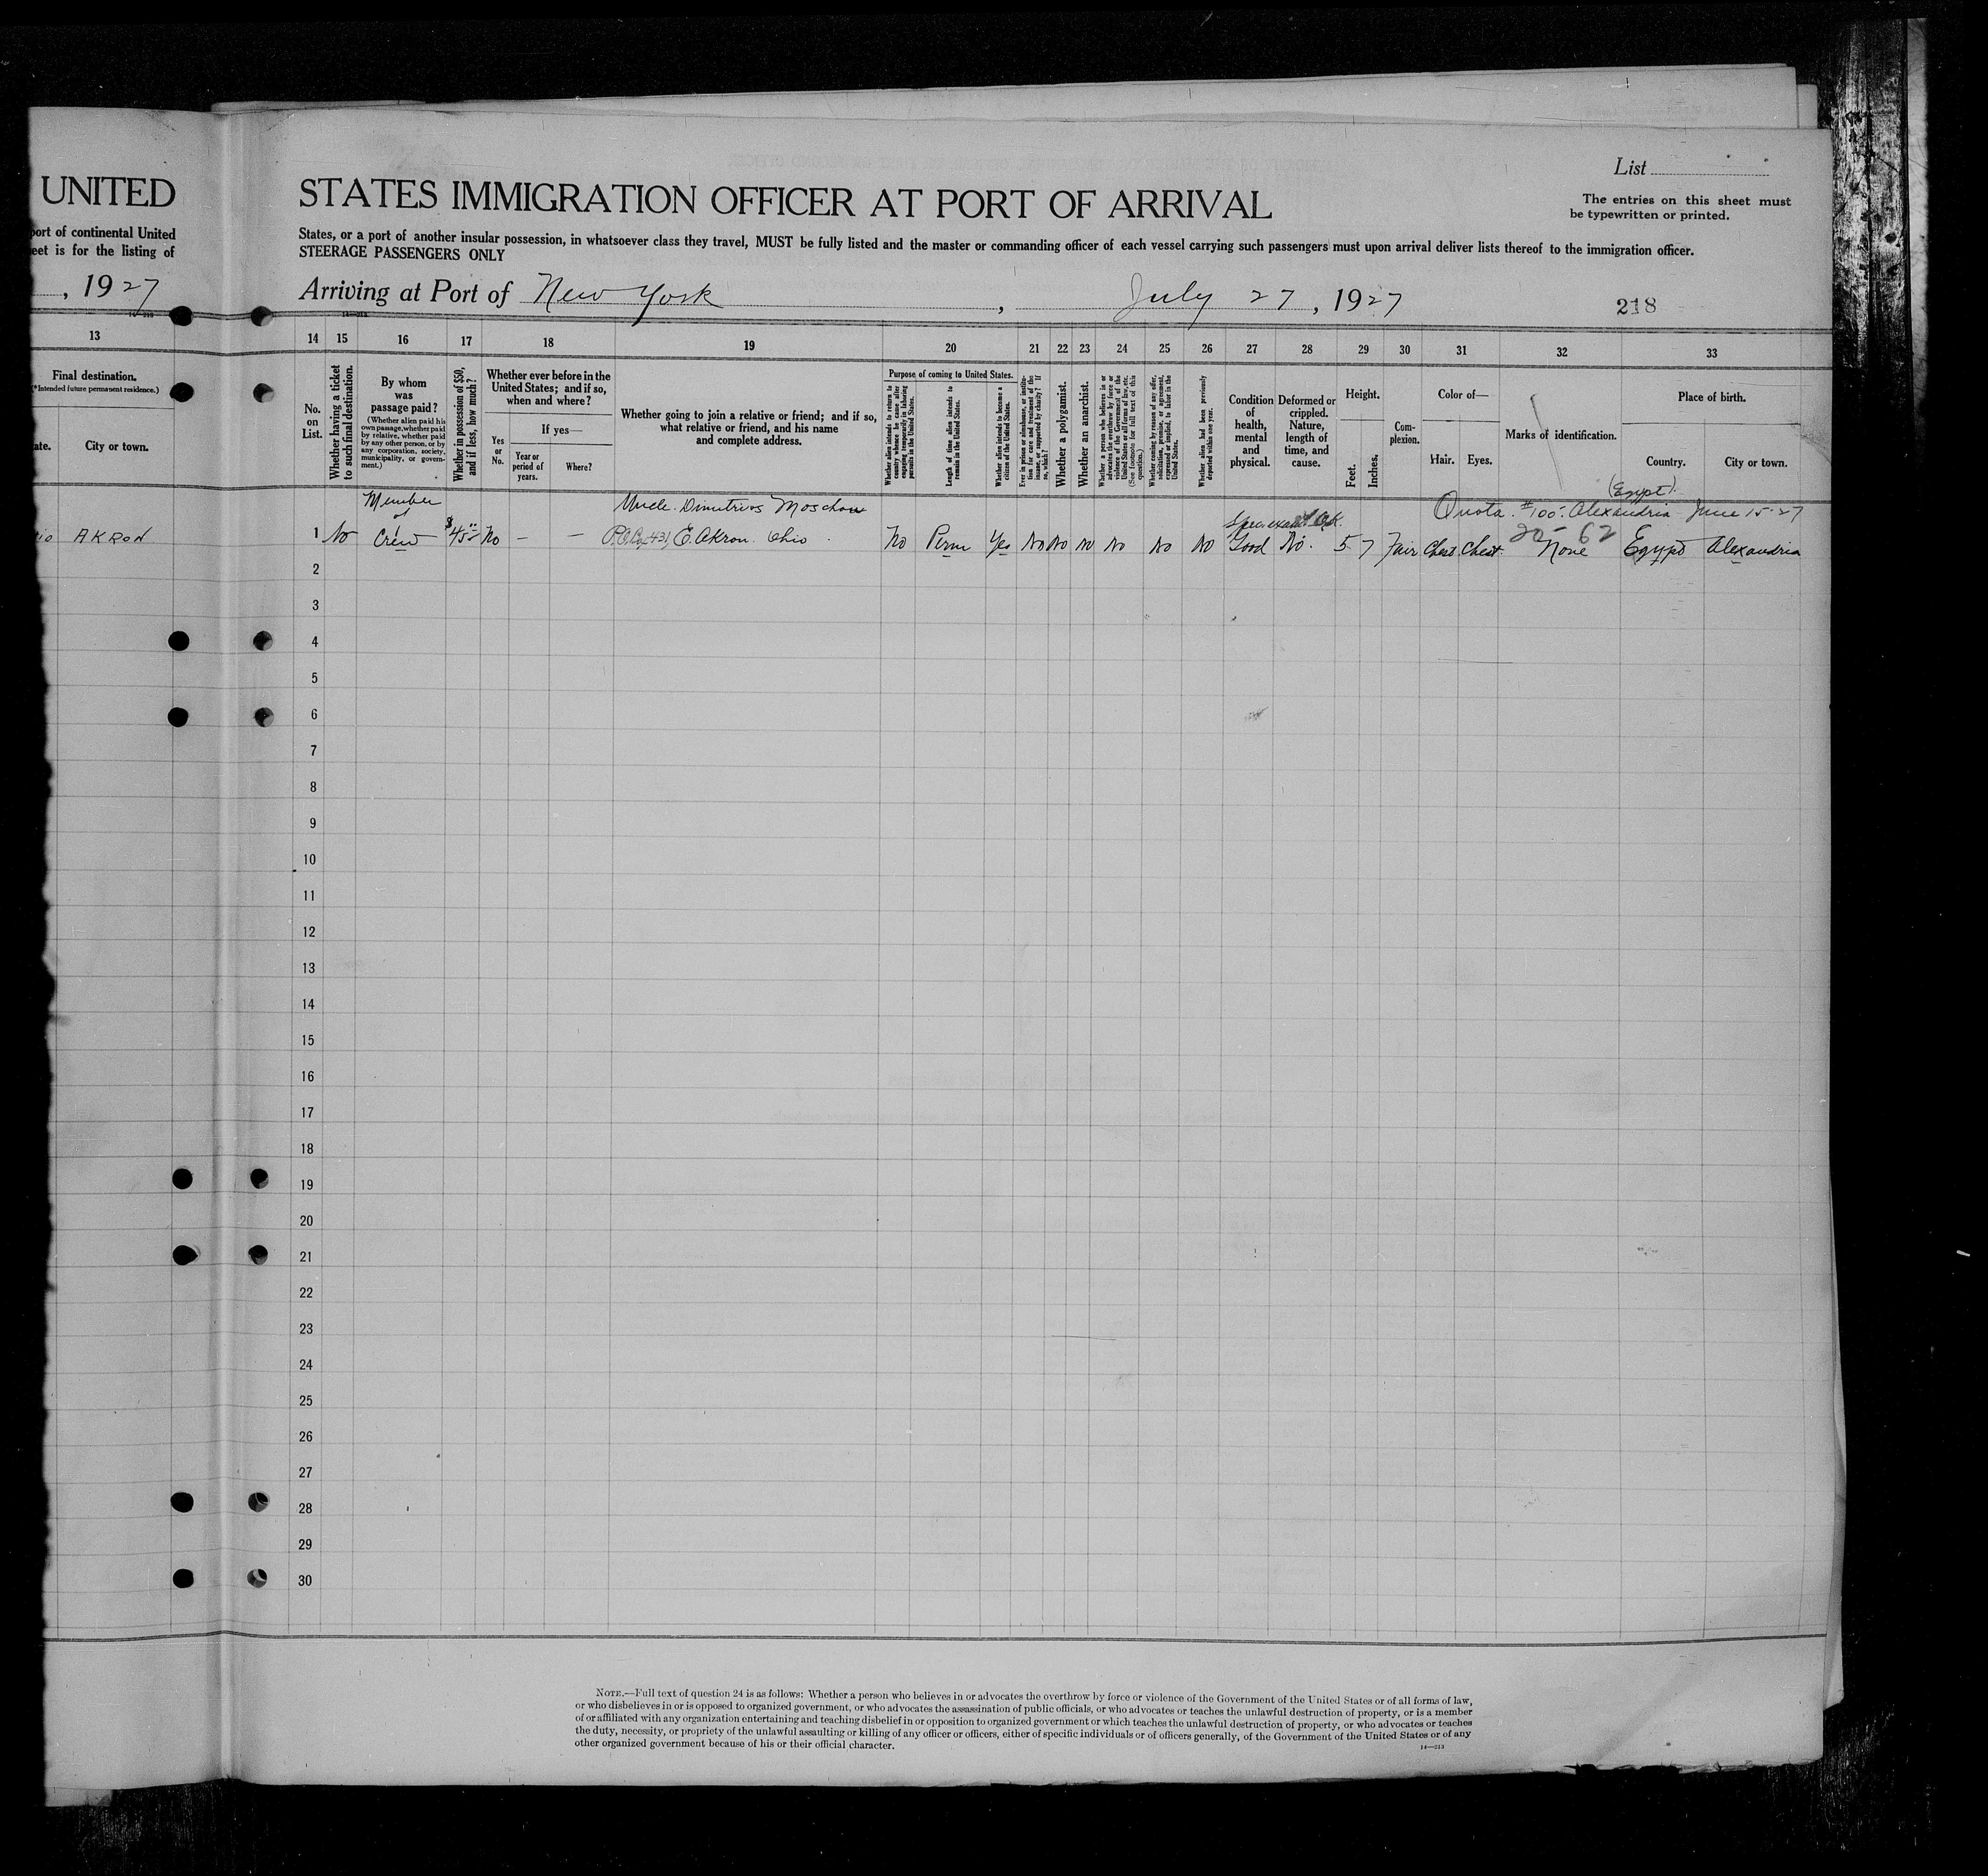 List
The entries on this sheet must
be typewritten or printed.
UNITED
STATES IMMIGRATION OFFICER AT PORT OF ARRIVAL
port of continental United
eet is for the listing of
States, or a port of another insular possession, in whatsoever class they travel, MUST be fully listed and the master or commanding officer of each vessel carrying such passengers must upon arrival deliver lists thereof to the immigration officer.
STEERAGE PASSENGERS ONLY
, 1927
Arriving at Port of New York, July 27, 1927
218
13
14 15 16 17 18 19 20 21 22 23 24 25 26 27 28 29 30 31 32 33
Final destination.
(*Intended future permanent residence.)
ate.
City or town.
No.
on
List.
Whether having a ticket
to such final destination.
By whom
was
passage paid?
(Whether alien paid his
own passage, whether paid
by relative, whether paid
by any other person, or by
any corporation, society,
municipality, or govern-
ment.)
Whether in possession of $50,
and if less, how much?
Whether ever before in the
United States; and if so,
when and where?
Yes
or
No.
If yes—
Year or
period of
years.
Where?
Whether going to join a relative or friend; and if so,
what relative or friend, and his name
and complete address.
Purpose of coming to United States.
Whether alien intends to return to
country whence he came after
engaging temporarily in laboring
pursuits in the United States.
Length of time alien intends to
remain in the United States.
Whether alien intends to become a
citizen of the United States.
Ever in prison or almshouse, or institu-
tion for care and treatment of the
insane, or supported by charity? If
so, which?
Whether a polygamist.
Whether an anarchist.
Whether a person who believes in or
advocates the overthrow by force or
violence of the Government of the
United States or all forms of law, etc.
(See footnote for full text of this
question.)
Whether coming by reason of any offer,
solicitation, promise, or agreement,
expressed or implied, to labor in the
United States.
Whether alien had been previously
deported within one year.
Condition
of
health,
mental
and
physical.
Deformed or
crippled.
Nature,
length of
time, and
cause.
Height.
Feet.
Inches.
Com-
plexion.
Color of—
Hair. Eyes.
Marks of identification.
Place of birth.
Country.
City or town.
(Egypt)
Member of Uncle Dimitrios Moschou Quota #100 Alexandria June 15-27
AKRON 1 No Crew $45 No – – P.O. Box 431, E. Akron Ohio No Perm Yes No No No No No No Good No. 5 7 Fair Chest Chest None Egypt Alexandria
20- 62
2
3
4
5
6
7
8
9
10
11
12
13
14
15
16
17
18
19
20
21
22
23
24
25
26
27
28
29
30
NOTE.—Full text of question 24 is as follows: Whether a person who believes in or advocates the overthrow by force or violence of the Government of the United States or of all forms of law,
or who disbelieves in or is opposed to organized government, or who advocates the assassination of public officials, or who advocates or teaches the unlawful destruction of property, or is a member
of or affiliated with any organization entertaining and teaching disbelief in or opposition to organized government or which teaches the unlawful destruction of property, or who advocates or teaches
the duty, necessity, or propriety of the unlawful assaulting or killing of any officer or officers, either of specific individuals or of officers generally, of the Government of the United States or of any
other organized government because of his or their official character.
14—213